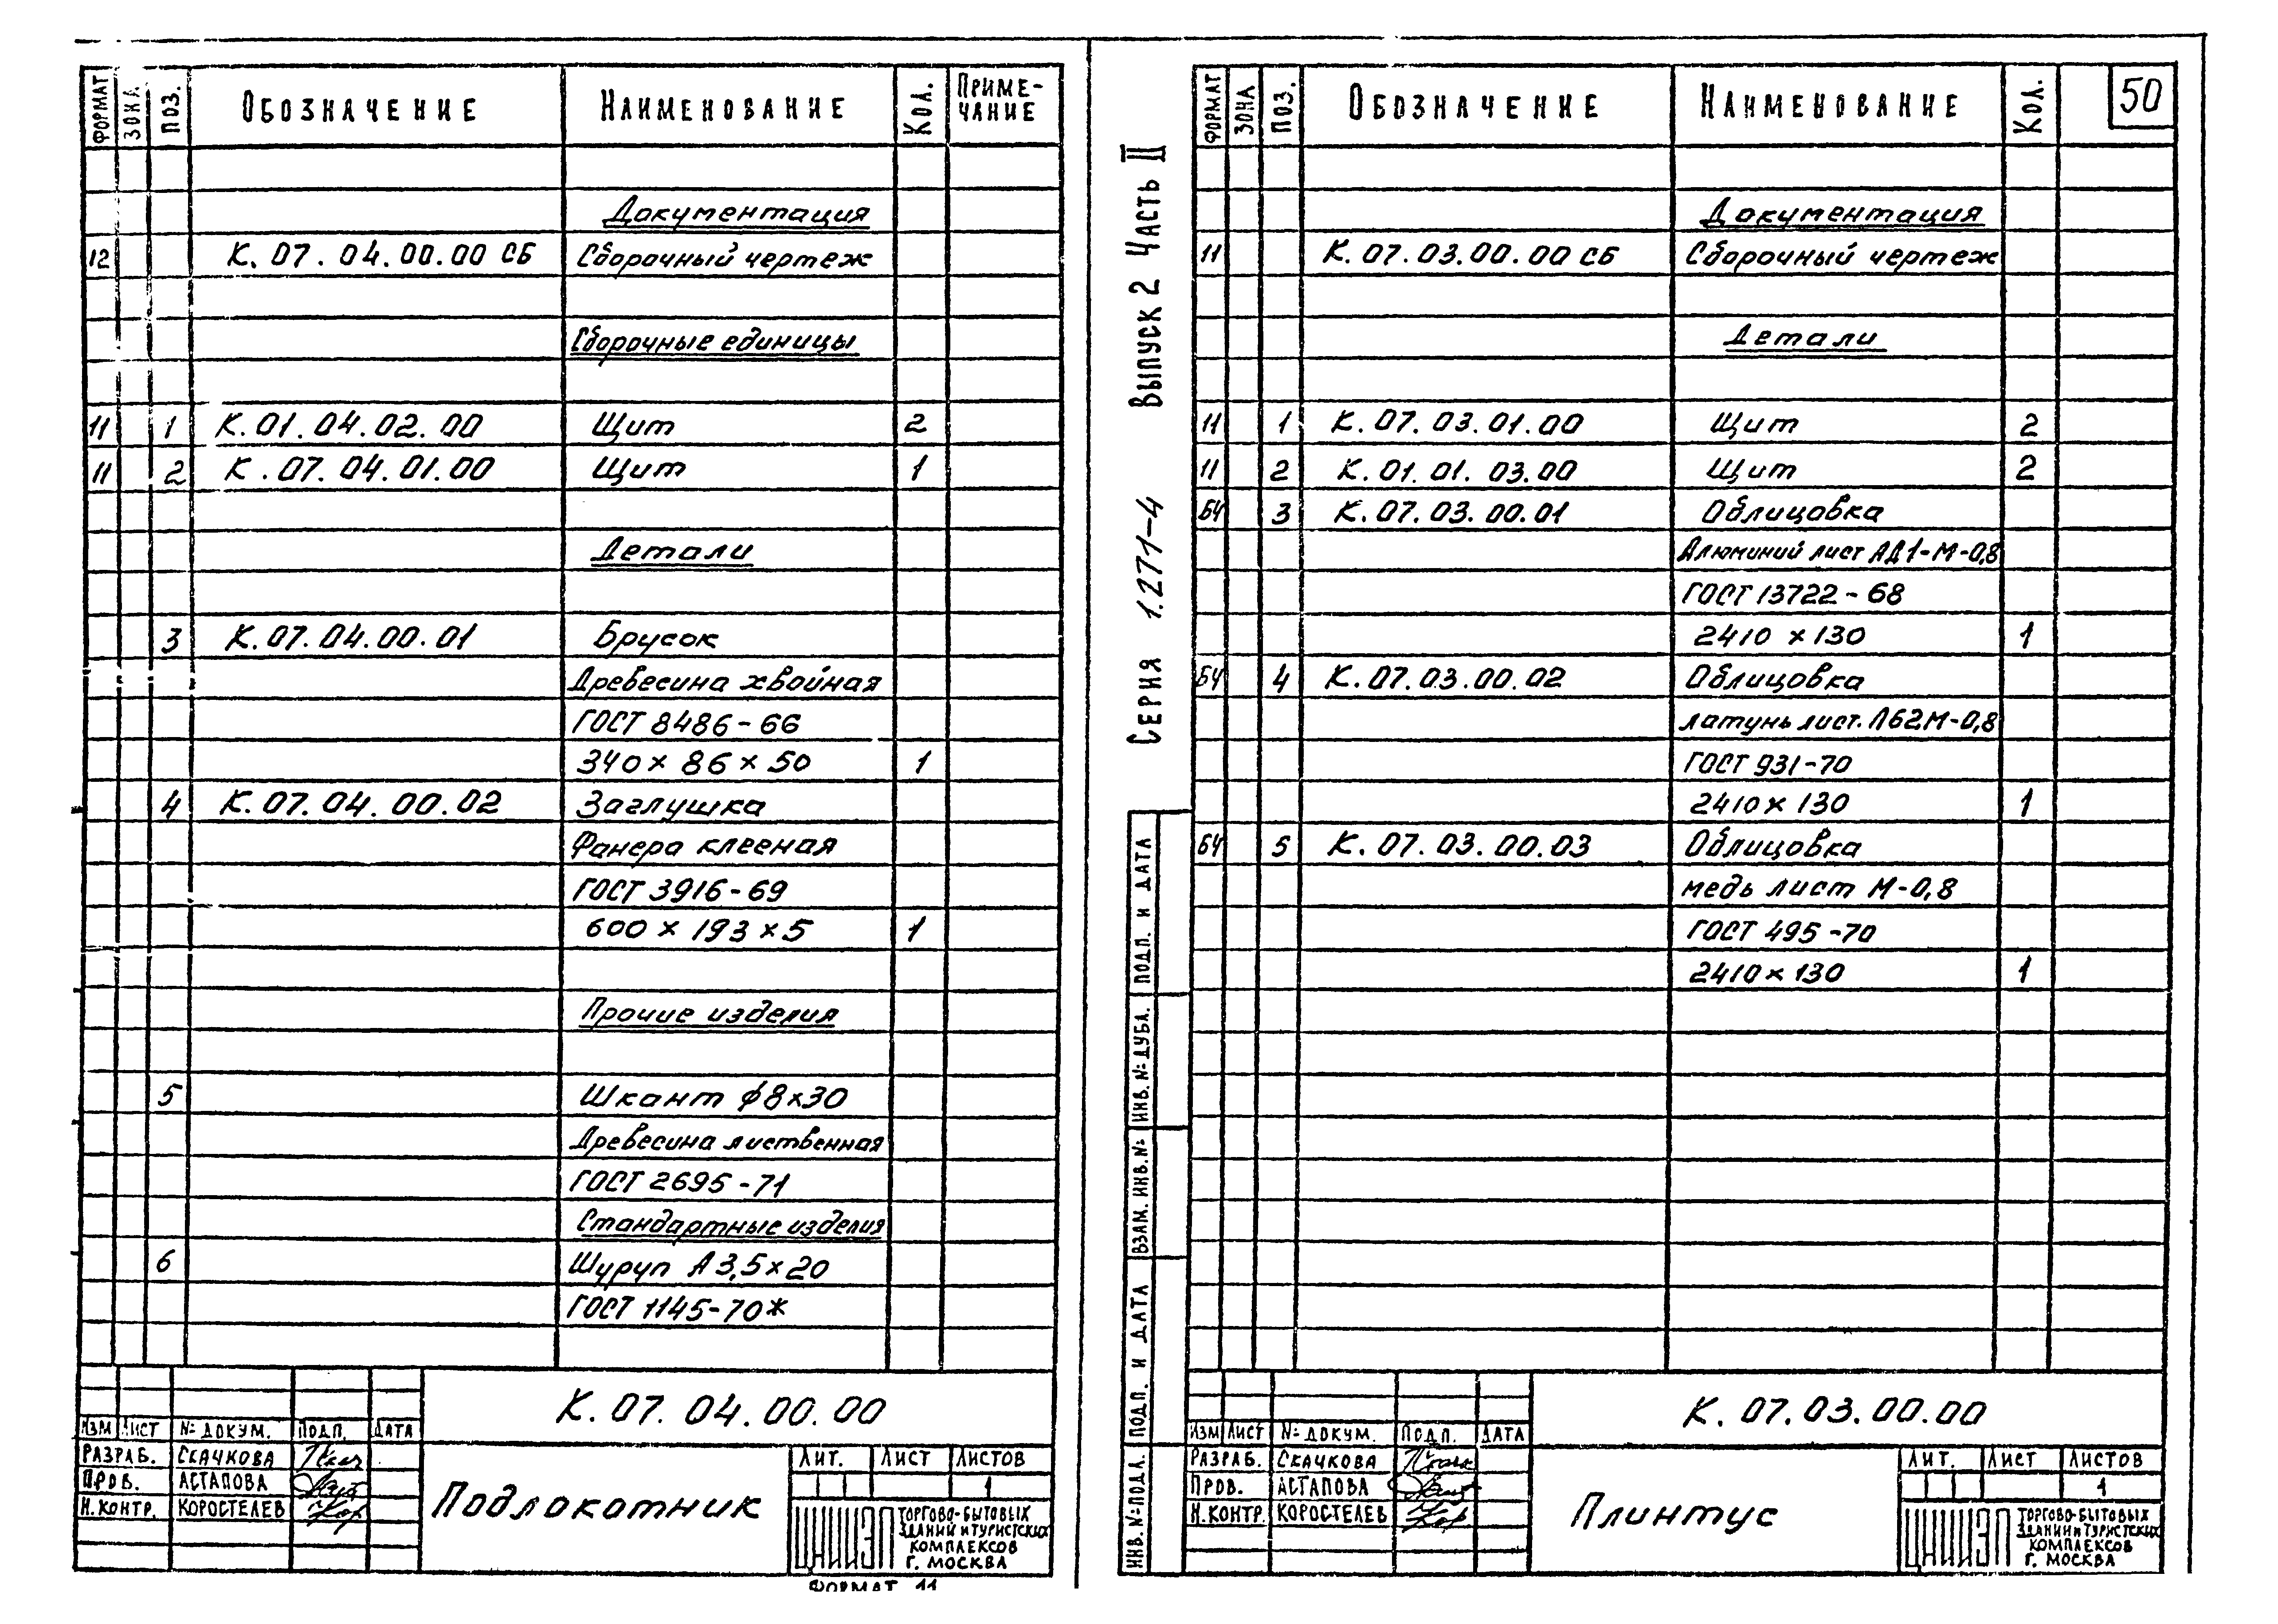 ФОРМАТ ЗОНА ПОЗ. ОБОЗНАЧЕНИЕ НАИМЕНОВАНИЕ КОЛ. ПРИМЕ-
ЧАНИЕ
Документация
12 К.07.04.00.00 СБ Сборочный чертеж
Сборочные единицы
11 1 К.01.04.02.00 Щит 2
11 2 К.07.04.01.00 Щит 1
Детали
3 К.07.04.00.01 Брусок
Древесина хвойная
ГОСТ 8486-66
340×86×50 1
4 К.07.04.00.02 Заглушка
Фанера клееная
ГОСТ 3916-69
600×193×5 1
Прочие изделия
5 Шкант ϕ8×30
Древесина лиственная
ГОСТ 2695-71
Стандартные изделия
6 Шуруп А3,5×20
ГОСТ 1145-70*
К.07.04.00.00
ИЗМ ЛИСТ № ДОКУМ. ПОДП. ДАТА
РАЗРАБ. СКАЧКОВА
ПРОВ. АСТАПОВА
Н.КОНТР. КОРОСТЕЛЕВ
Подлокотник
ЛИТ. ЛИСТ ЛИСТОВ
1
ЦНИИЭП
ТОРГОВО-БЫТОВЫХ
ЗДАНИЙ И ТУРИСТСКИХ
КОМПЛЕКСОВ
Г. МОСКВА
ФОРМАТ 11
СЕРИЯ 1.271-4 ВЫПУСК 2 ЧАСТЬ II
ИНВ.№ПОДЛ. ПОДП. И ДАТА ВЗАМ. ИНВ.№ ИНВ.№ДУБЛ. ПОДП. И ДАТА
50
ФОРМАТ ЗОНА ПОЗ. ОБОЗНАЧЕНИЕ НАИМЕНОВАНИЕ КОЛ.
Документация
11 К.07.03.00.00 СБ Сборочный чертеж
Детали
11 1 К.07.03.01.00 Щит 2
11 2 К.01.01.03.00 Щит 2
БЧ 3 К.07.03.00.01 Облицовка
Алюминий лист АД1-М-0,8
ГОСТ 13722-68
2410×130 1
БЧ 4 К.07.03.00.02 Облицовка
латунь лист. Л62.М-0,8
ГОСТ 931-70
2410×130 1
БЧ 5 К.07.03.00.03 Облицовка
медь лист М-0,8
ГОСТ 495-70
2410×130 1
К.07.03.00.00
ИЗМ ЛИСТ № ДОКУМ. ПОДП. ДАТА
РАЗРАБ. СКАЧКОВА
ПРОВ. АСТАПОВА
Н.КОНТР. КОРОСТЕЛЕВ
Плинтус
ЛИТ. ЛИСТ ЛИСТОВ
1
ЦНИИЭП
ТОРГОВО-БЫТОВЫХ
ЗДАНИЙ И ТУРИСТСКИХ
КОМПЛЕКСОВ
Г. МОСКВА